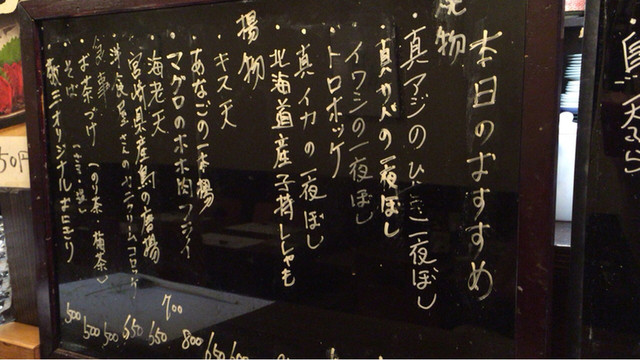 本日のおすすめ
焼物
・真アジのひらき一夜ぼし
・真サバの一夜ぼし
・イワシの一夜ぼし
・トロホッケ
・真イカの一夜ぼし
・北海道産子持ししゃも
揚物
・キス天
・あなごの一本揚
・マグロのホホ肉フライ 800
・海老天 700
・宮崎県産鳥の唐揚 650
・洋食屋さんのカニクリームコロッケ 650
食事
・お茶づけ(のり茶・梅茶) 500
・そば 500
・オリジナルおにぎり 500
650
600
50円